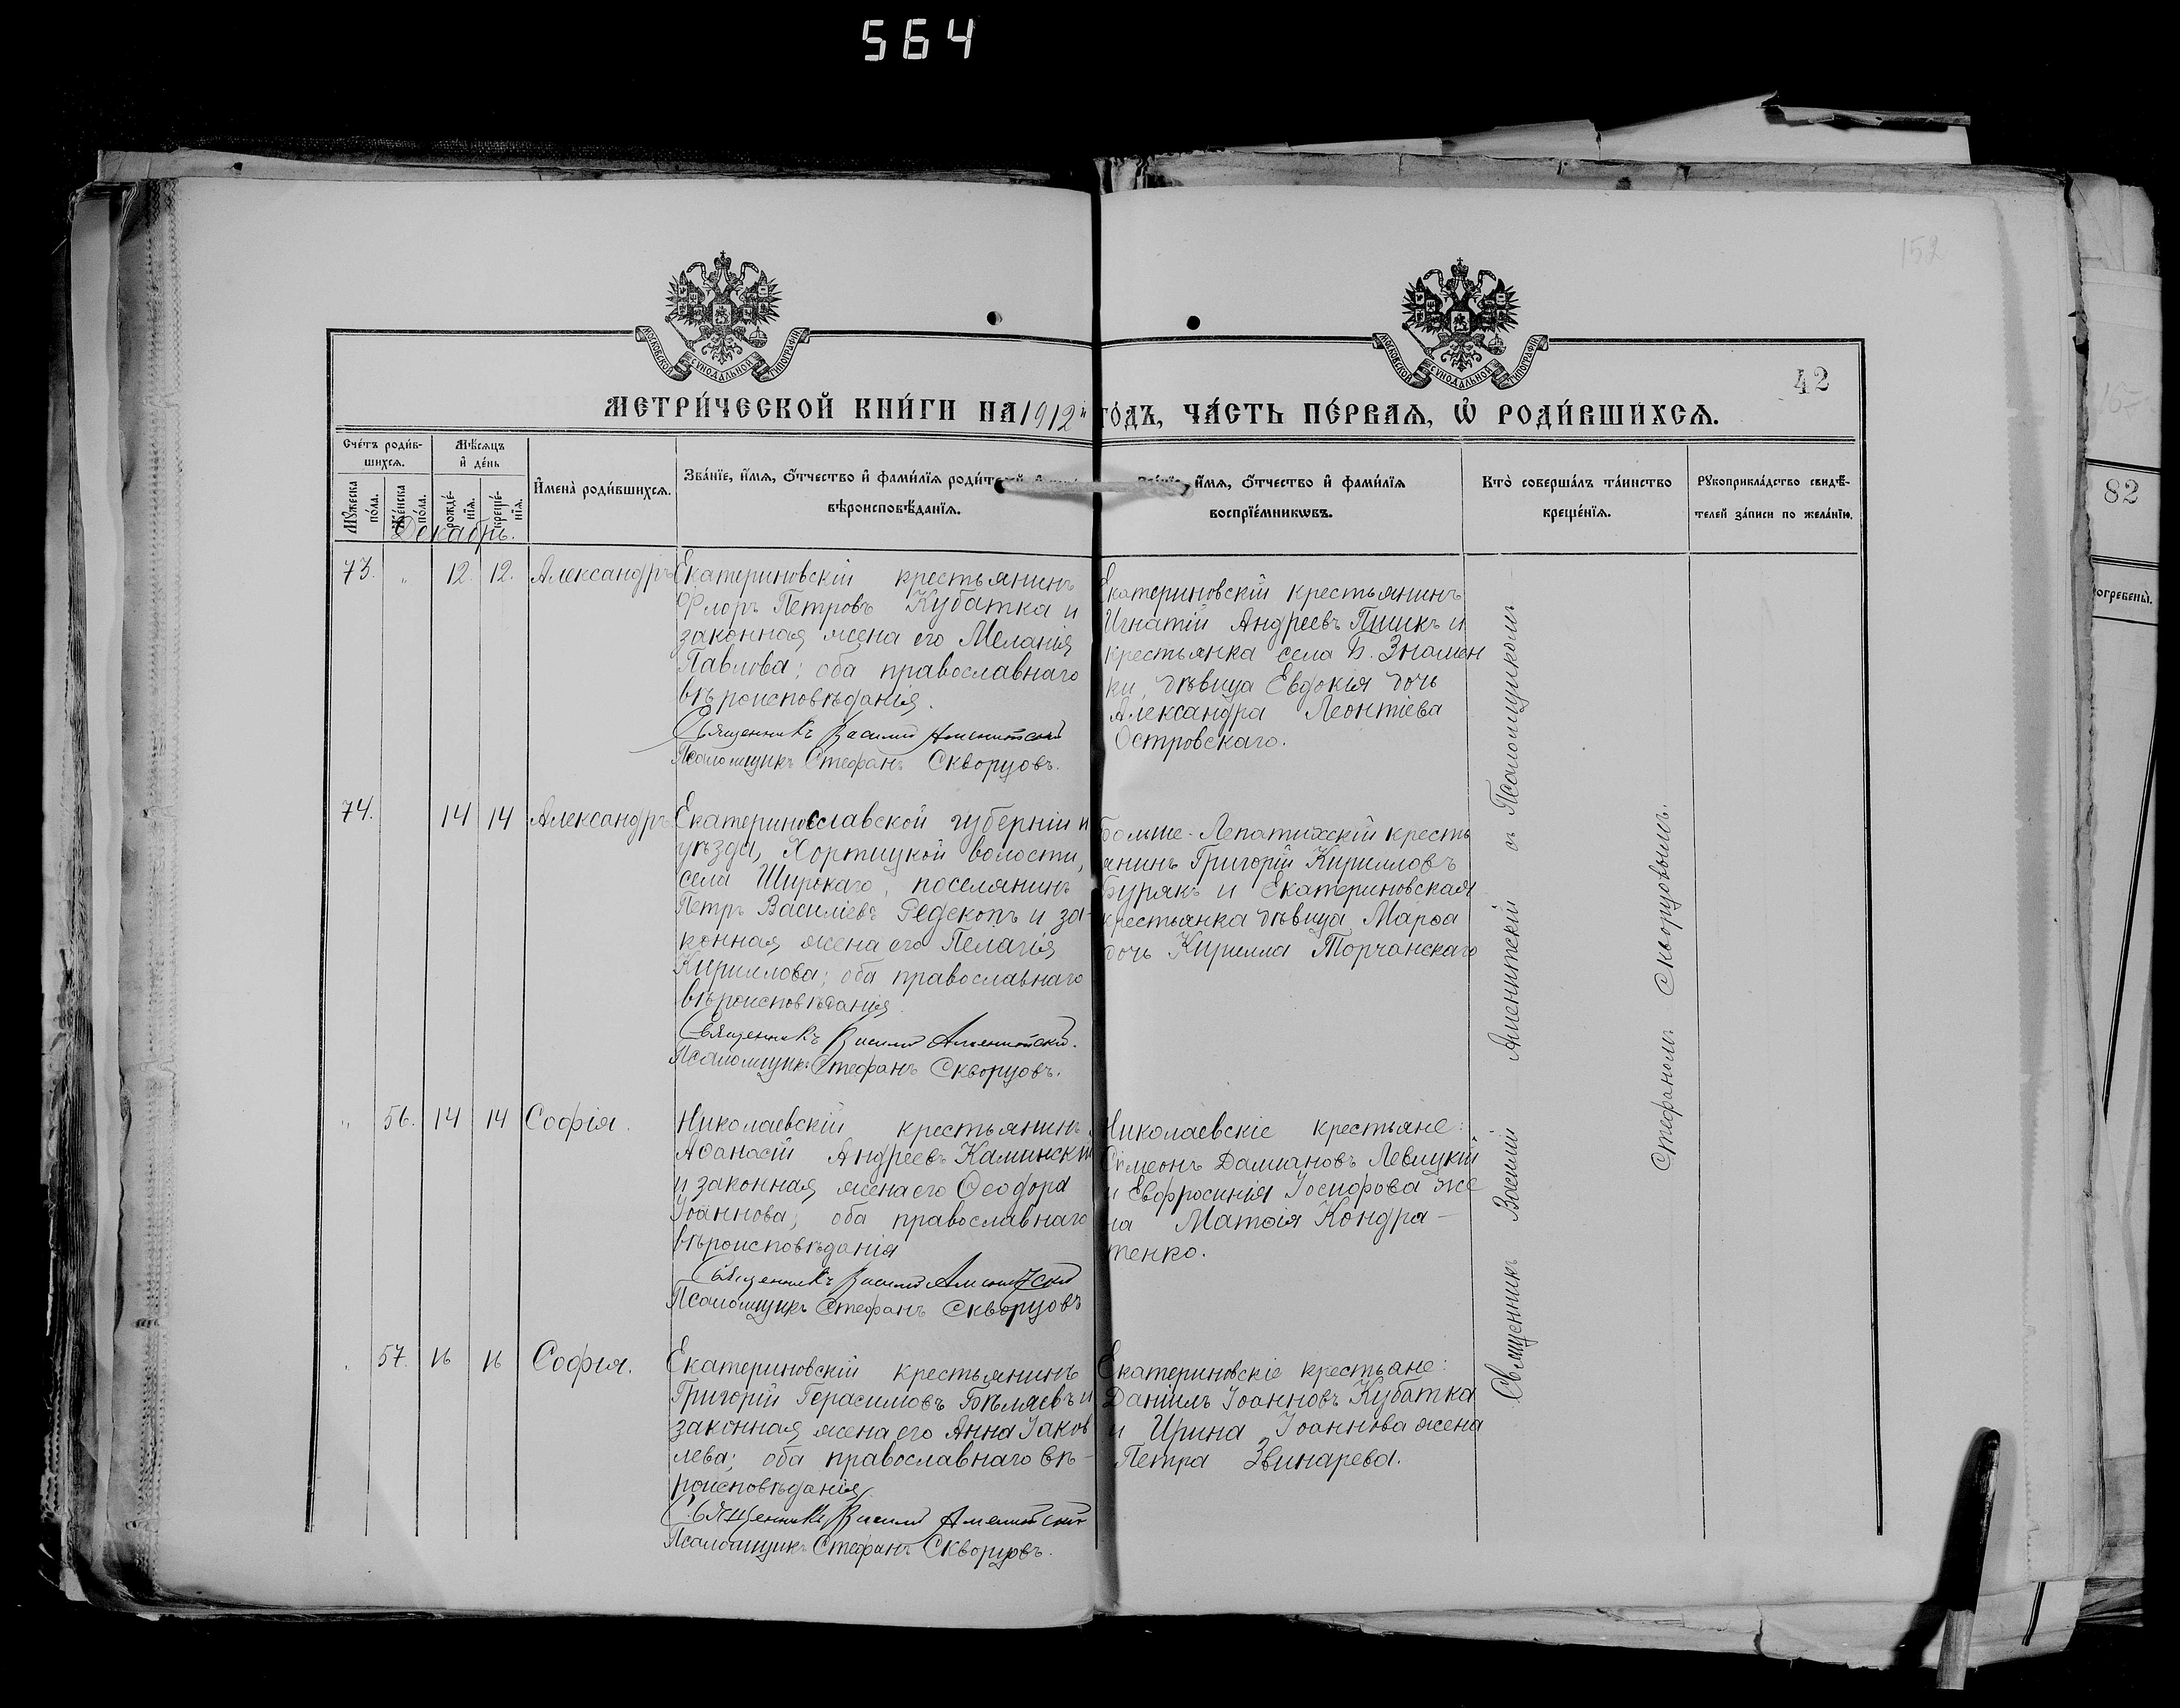 564
152
МОСКОВСКОЙ СѴНОДАЛЬНОЙ ТИПОГРАФІИ
МОСКОВСКОЙ СѴНОДАЛЬНОЙ ТИПОГРАФІИ
42
МЕТРИ́ЧЕСКОЙ КНИ́ГИ НА 1912й ГО́ДЪ, ЧА́СТЬ ПЕ́РВАѦ, Ѡ҆ РОДИ́ВШИХСѦ.
Сче́тъ роди́в-
шихсѧ.
Мѣ́сѧцъ
и҆ де́нь
Мꙋ́жеска
по́ла.
Же́нска
по́ла.
рожде́-
нїѧ.
креще́-
нїѧ.
И҆мена̀ роди́вшихсѧ.
Зва́нїе, и҆́мѧ, ѻ҆́тчество и҆ фами́лїѧ роди́телей
вѣроисповѣ́данїѧ.
Зва́нїе, и҆́мѧ, ѻ҆́тчество и҆ фами́лїѧ
воспрїе́мникѡвъ.
Кто̀ соверша́лъ та́инство
креще́нїѧ.
Рꙋкоприкла́дство свидѣ́-
телей за́писи по жела́нїю.
82
погребены̀.
Декабрь.
73. „ 12. 12. Александръ
Екатериновскій крестьянинъ
Флоръ Петровъ Кубатка и
законная жена его Меланія
Павлова; оба православнаго
вѣроисповѣданія.
Священникъ Василій Аменитскій
Псаломщикъ Стефанъ Скворцовъ.
Екатериновскій крестьянинъ
Игнатій Андреевъ Пшикъ и
крестьянка села Б. Знамен
ки, дѣвица Евдокія дочь
Александра Леонтіева
Островскаго.
74. 14 14 Александръ
Екатеринославской губерніи и
уѣзда, Хортицкой волости,
села Широкаго, поселянинъ
Петръ Василіевъ Редекопъ и за-
конная жена его Пелагія
Кириллова; оба православнаго
вѣроисповѣданія
Священникъ Василій Аменитскій.
Псаломщикъ Стефанъ Скворцовъ.
Больше-Лепатихскій кресть
янинъ Григорій Кирилловъ
Бурякъ и Екатериновская
крестьянка дѣвица Марѳа
дочь Кирилла Торчанскаго
„ 56. 14 14 Софія.
Николаевскій крестьянинъ
Аѳанасій Андреевъ Каминскій
и законная жена его Ѳеодора
Іоаннова; оба православнаго
вѣроисповѣданія
Священникъ Василій Аменитскій
Псаломщикъ Стефанъ Скворцовъ
Николаевскіе крестьяне:
Симеонъ Даміановъ Левицкій
и Евфросинія Іосифова же
на Матѳія Кондра-
тенко.
57. 16 16 Софія.
Екатериновскій крестьянинъ
Григорій Герасимовъ Бѣляевъ и
законная жена его Анна Іаков
лева; оба православнаго вѣ-
роисповѣданія
Священникъ Василій Аменитскій
Псаломщикъ Стефанъ Скворцовъ.
Екатериновскіе крестьяне:
Даніилъ Іоанновъ Кубатка
и Ирина Іоаннова жена
Петра Звинарева.
Священникъ Василій Аменитскій съ Псаломщикомъ
Стефаномъ Скворцовымъ.